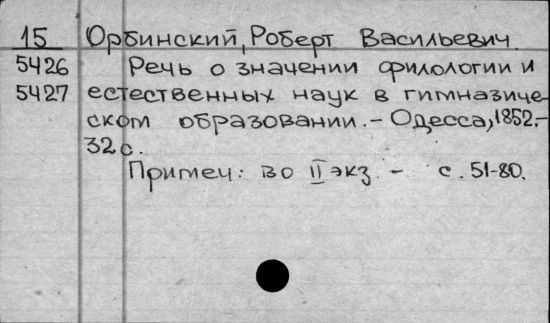 15 Орбинский, Роберт Васильевич.
5426 Речь о значении филологии и
5427 естественных наук в гимназиче-
ском образовании. - Одесса, 1852.-
32 с.
Примеч: во II экз. - с. 51-80.